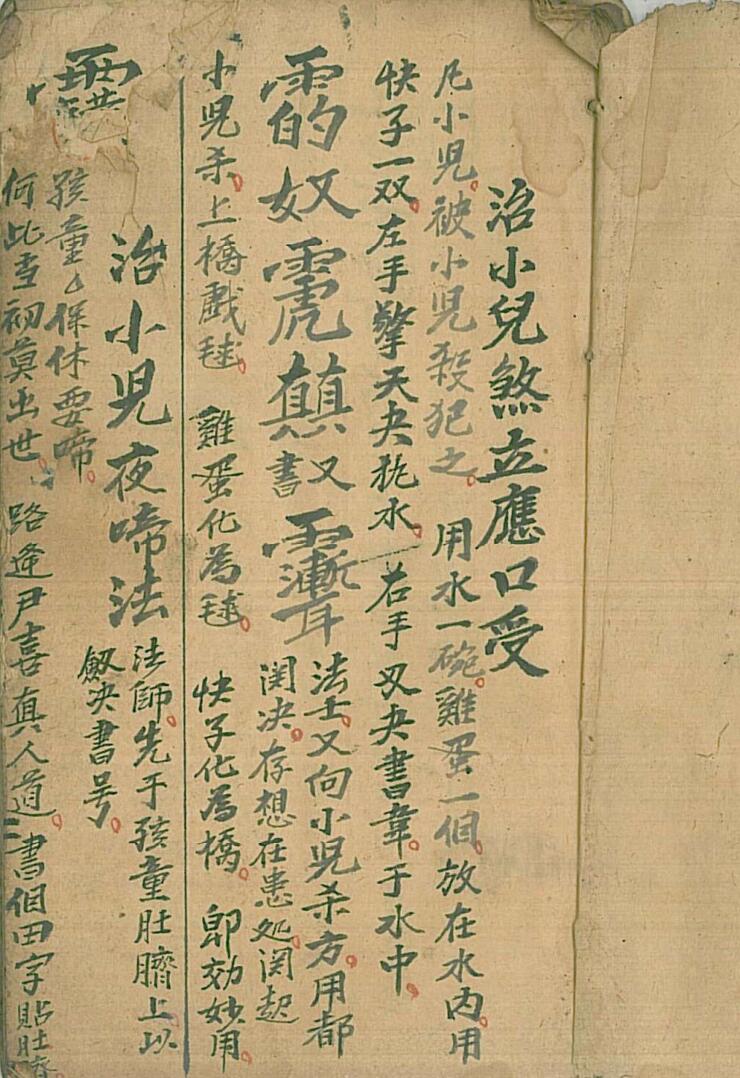 治小兒煞立應口受
凡小児被小児殺犯之。用水一碗。雞蛋一個。放在水内。用
快子一双。左手擎天决托水。右手叉决書韋。于水中。
又書
法士又向小児杀方。用都
関决。存想在患处。関起
小児杀。上橋戲毬。雞蛋化為毬。快子化為橋。即効妙用。
治小児夜啼法
法師。先于孩童肚臍上。以
劔决書号。
孩童々保休要啼。
何此當初莫出世。路逢尹喜真人道。書個田字貼肚臍